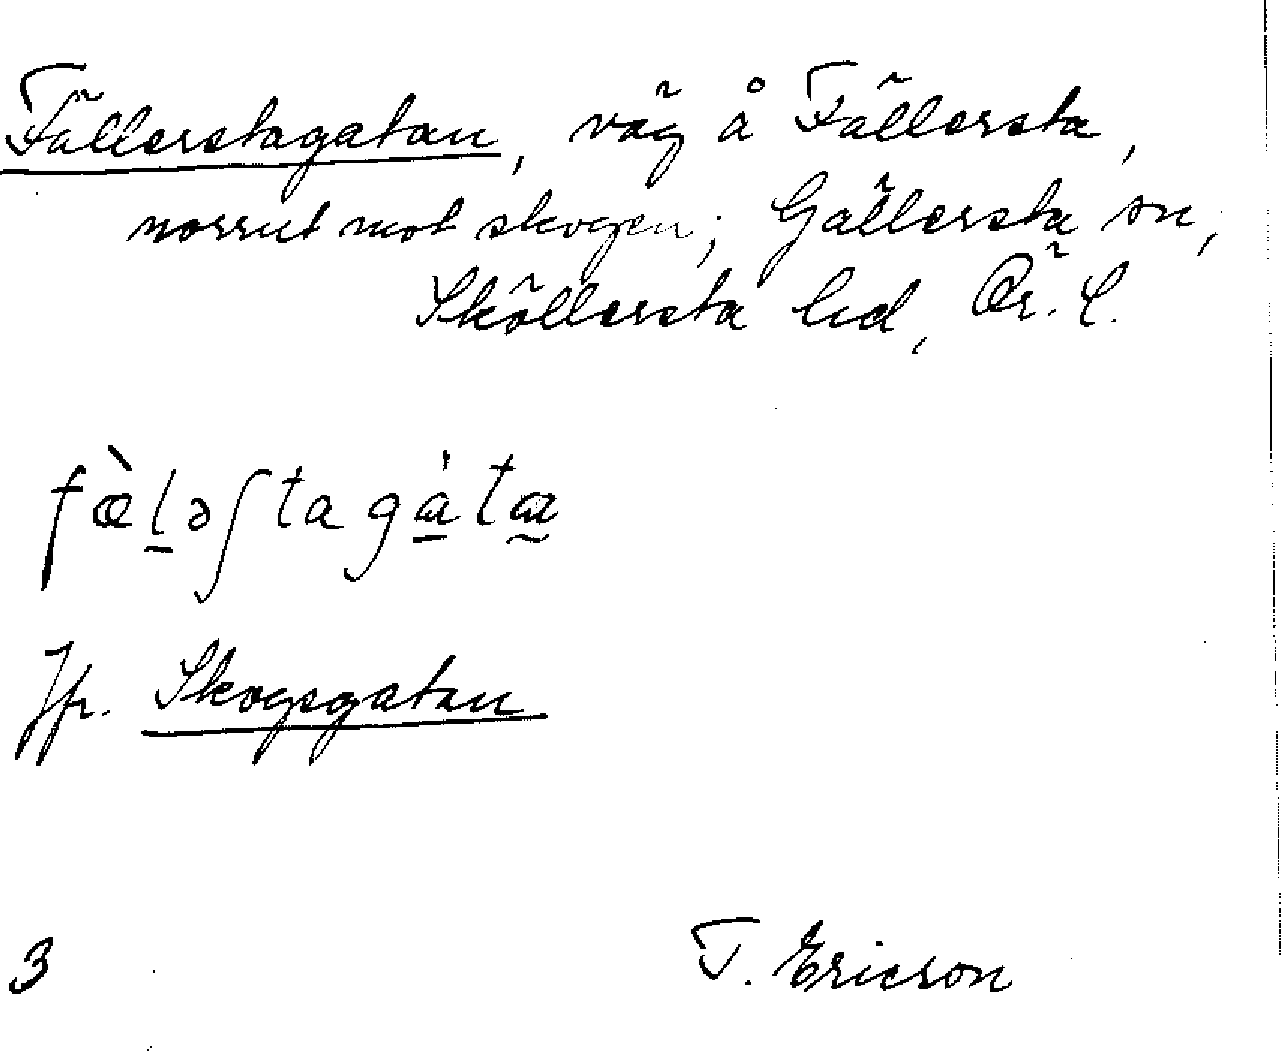 Fällerstagatan, väg å Fällersta,
norrut mot skogen; Gällersta sn,
Sköllersta hd, Ör. l.
fæ̀l̠əʃtagɑ̠̍tɑ̰
Jfr. Skogsgatan
3 T. Ericson